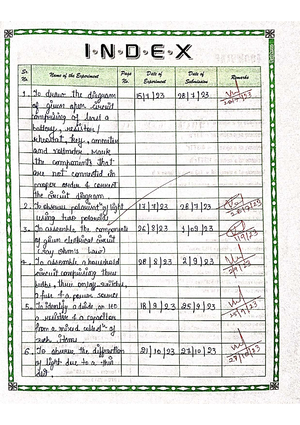 INDEX
Sr. No. Name of the Experiment Page No. Date of Experiment Date of Submission Remarks
1. To draw the diagram 15/7/23 28/7/23
of given open circuit
comprising of least a
battery, resistor/
rheostat, key, ammeter
and voltmeter. Mark
the components that
are not connected in
proper order & correct
the circuit diagram.
2. To observe polarisatn of light 17/7/23 28/7/23
using two polaroids
3. To assemble the components 26/8/23
of given electrical circuit
1/9/23
4. To assemble a household 28/8/23 2/9/23
circuit comprising three
bulbs, three on/off switches,
a fuse & a power source
5. To identify a diode, an LED 18/9/23 25/9/23
a resistor & a capacitor
from a mixed collectn of
such items.
6. To observe the diffraction 21/10/23 27/10/23
of light due to a thin
slit.